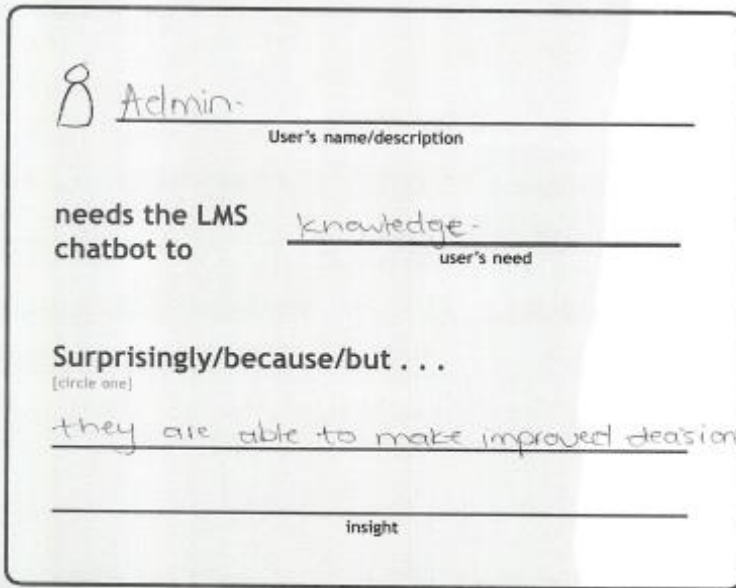 Admin.
User's name/description
needs the LMS
chatbot to
knowledge.
user's need
Surprisingly/because/but . . .
[circle one]
they are able to make improved decision
insight